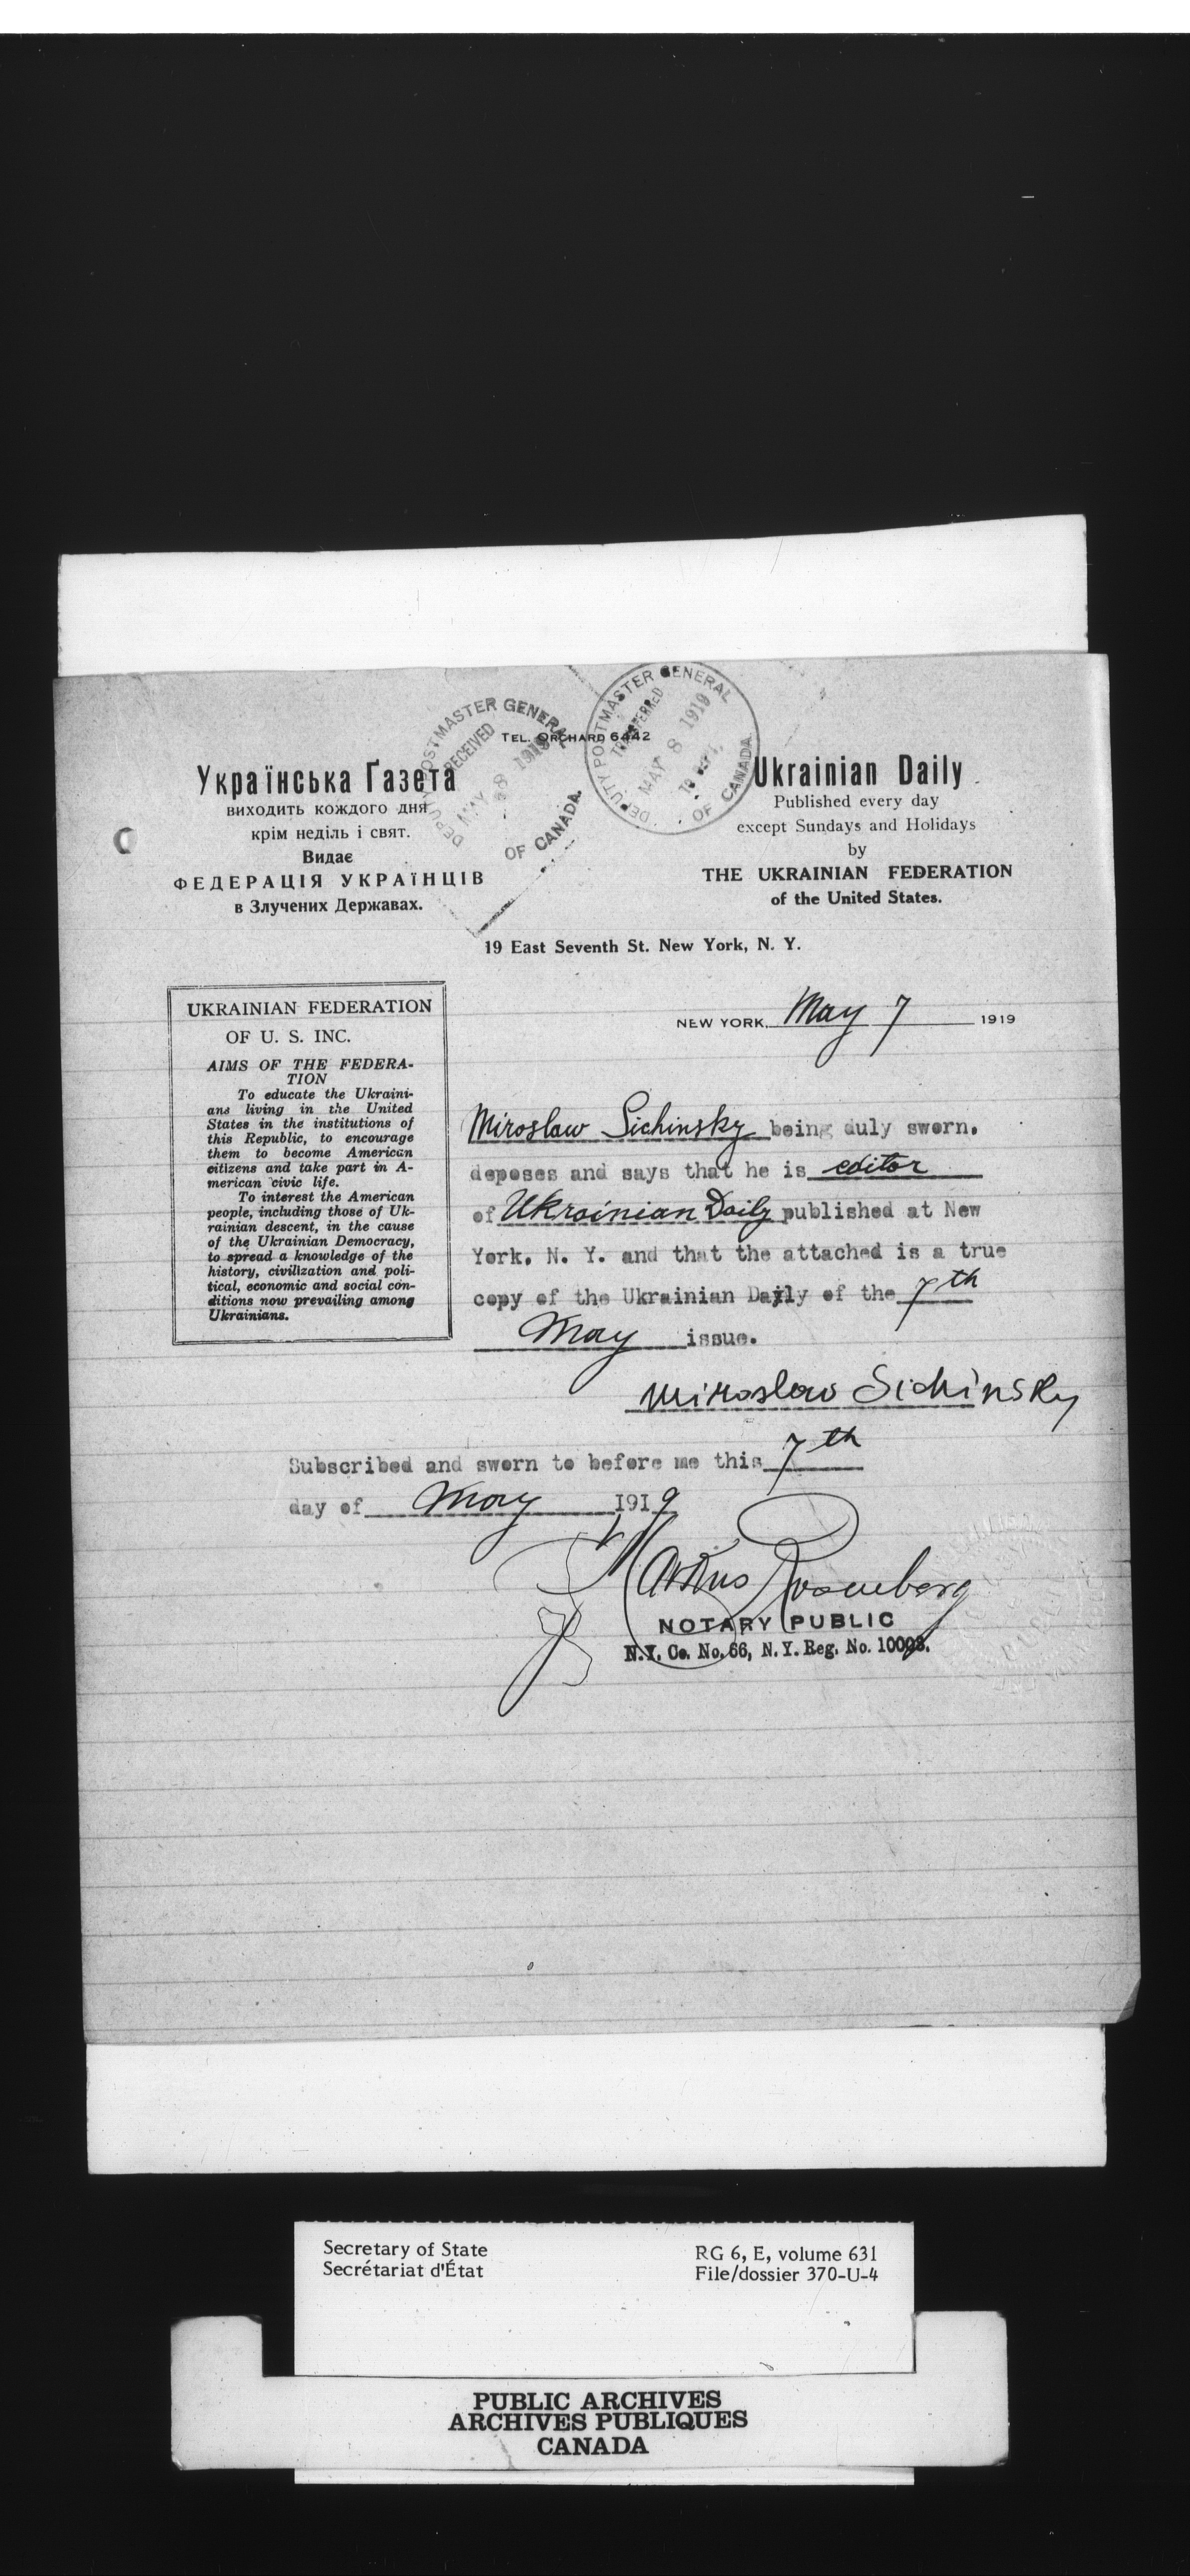 DEPUTY POSTMASTER GENERAL
RECEIVED
MAY 8 1919
OF CANADA.
DEPUTY POSTMASTER GENERAL
TRANSFERRED
MAY 8 1919
OF CANADA
TEL. ORCHARD 6442
Українська Ґазета
виходить кождого дня
крім неділь і свят.
Видає
ФЕДЕРАЦІЯ УКРАЇНЦІВ
в Злучених Державах.
Ukrainian Daily
Published every day
except Sundays and Holidays
by
THE UKRAINIAN FEDERATION
of the United States.
19 East Seventh St. New York, N. Y.
UKRAINIAN FEDERATION
OF U. S. INC.
AIMS OF THE FEDERA-
TION
To educate the Ukraini-
ans living in the United
States in the institutions of
this Republic, to encourage
them to become American
citizens and take part in A-
merican civic life.
To interest the American
people, including those of Uk-
rainian descent, in the cause
of the Ukrainian Democracy,
to spread a knowledge of the
history, civilization and poli-
tical, economic and social con-
ditions now prevailing among
Ukrainians.
NEW YORK, May 7 1919
Miroslaw Sichinsky being duly sworn,
deposes and says that he is editor
of Ukrainian Daily published at New
York, N. Y. and that the attached is a true
copy of the Ukrainian Daily of the 7th
May issue.
Miroslaw Sichinsky
Subscribed and sworn to before me this 7th
day of May 1919
Rosenberg
NOTARY PUBLIC
N.Y. Co. No. 66, N.Y. Reg. No. 10003.
Secretary of State
Secrétariat d'État
RG 6, E, volume 631
File/dossier 370-U-4
PUBLIC ARCHIVES
ARCHIVES PUBLIQUES
CANADA